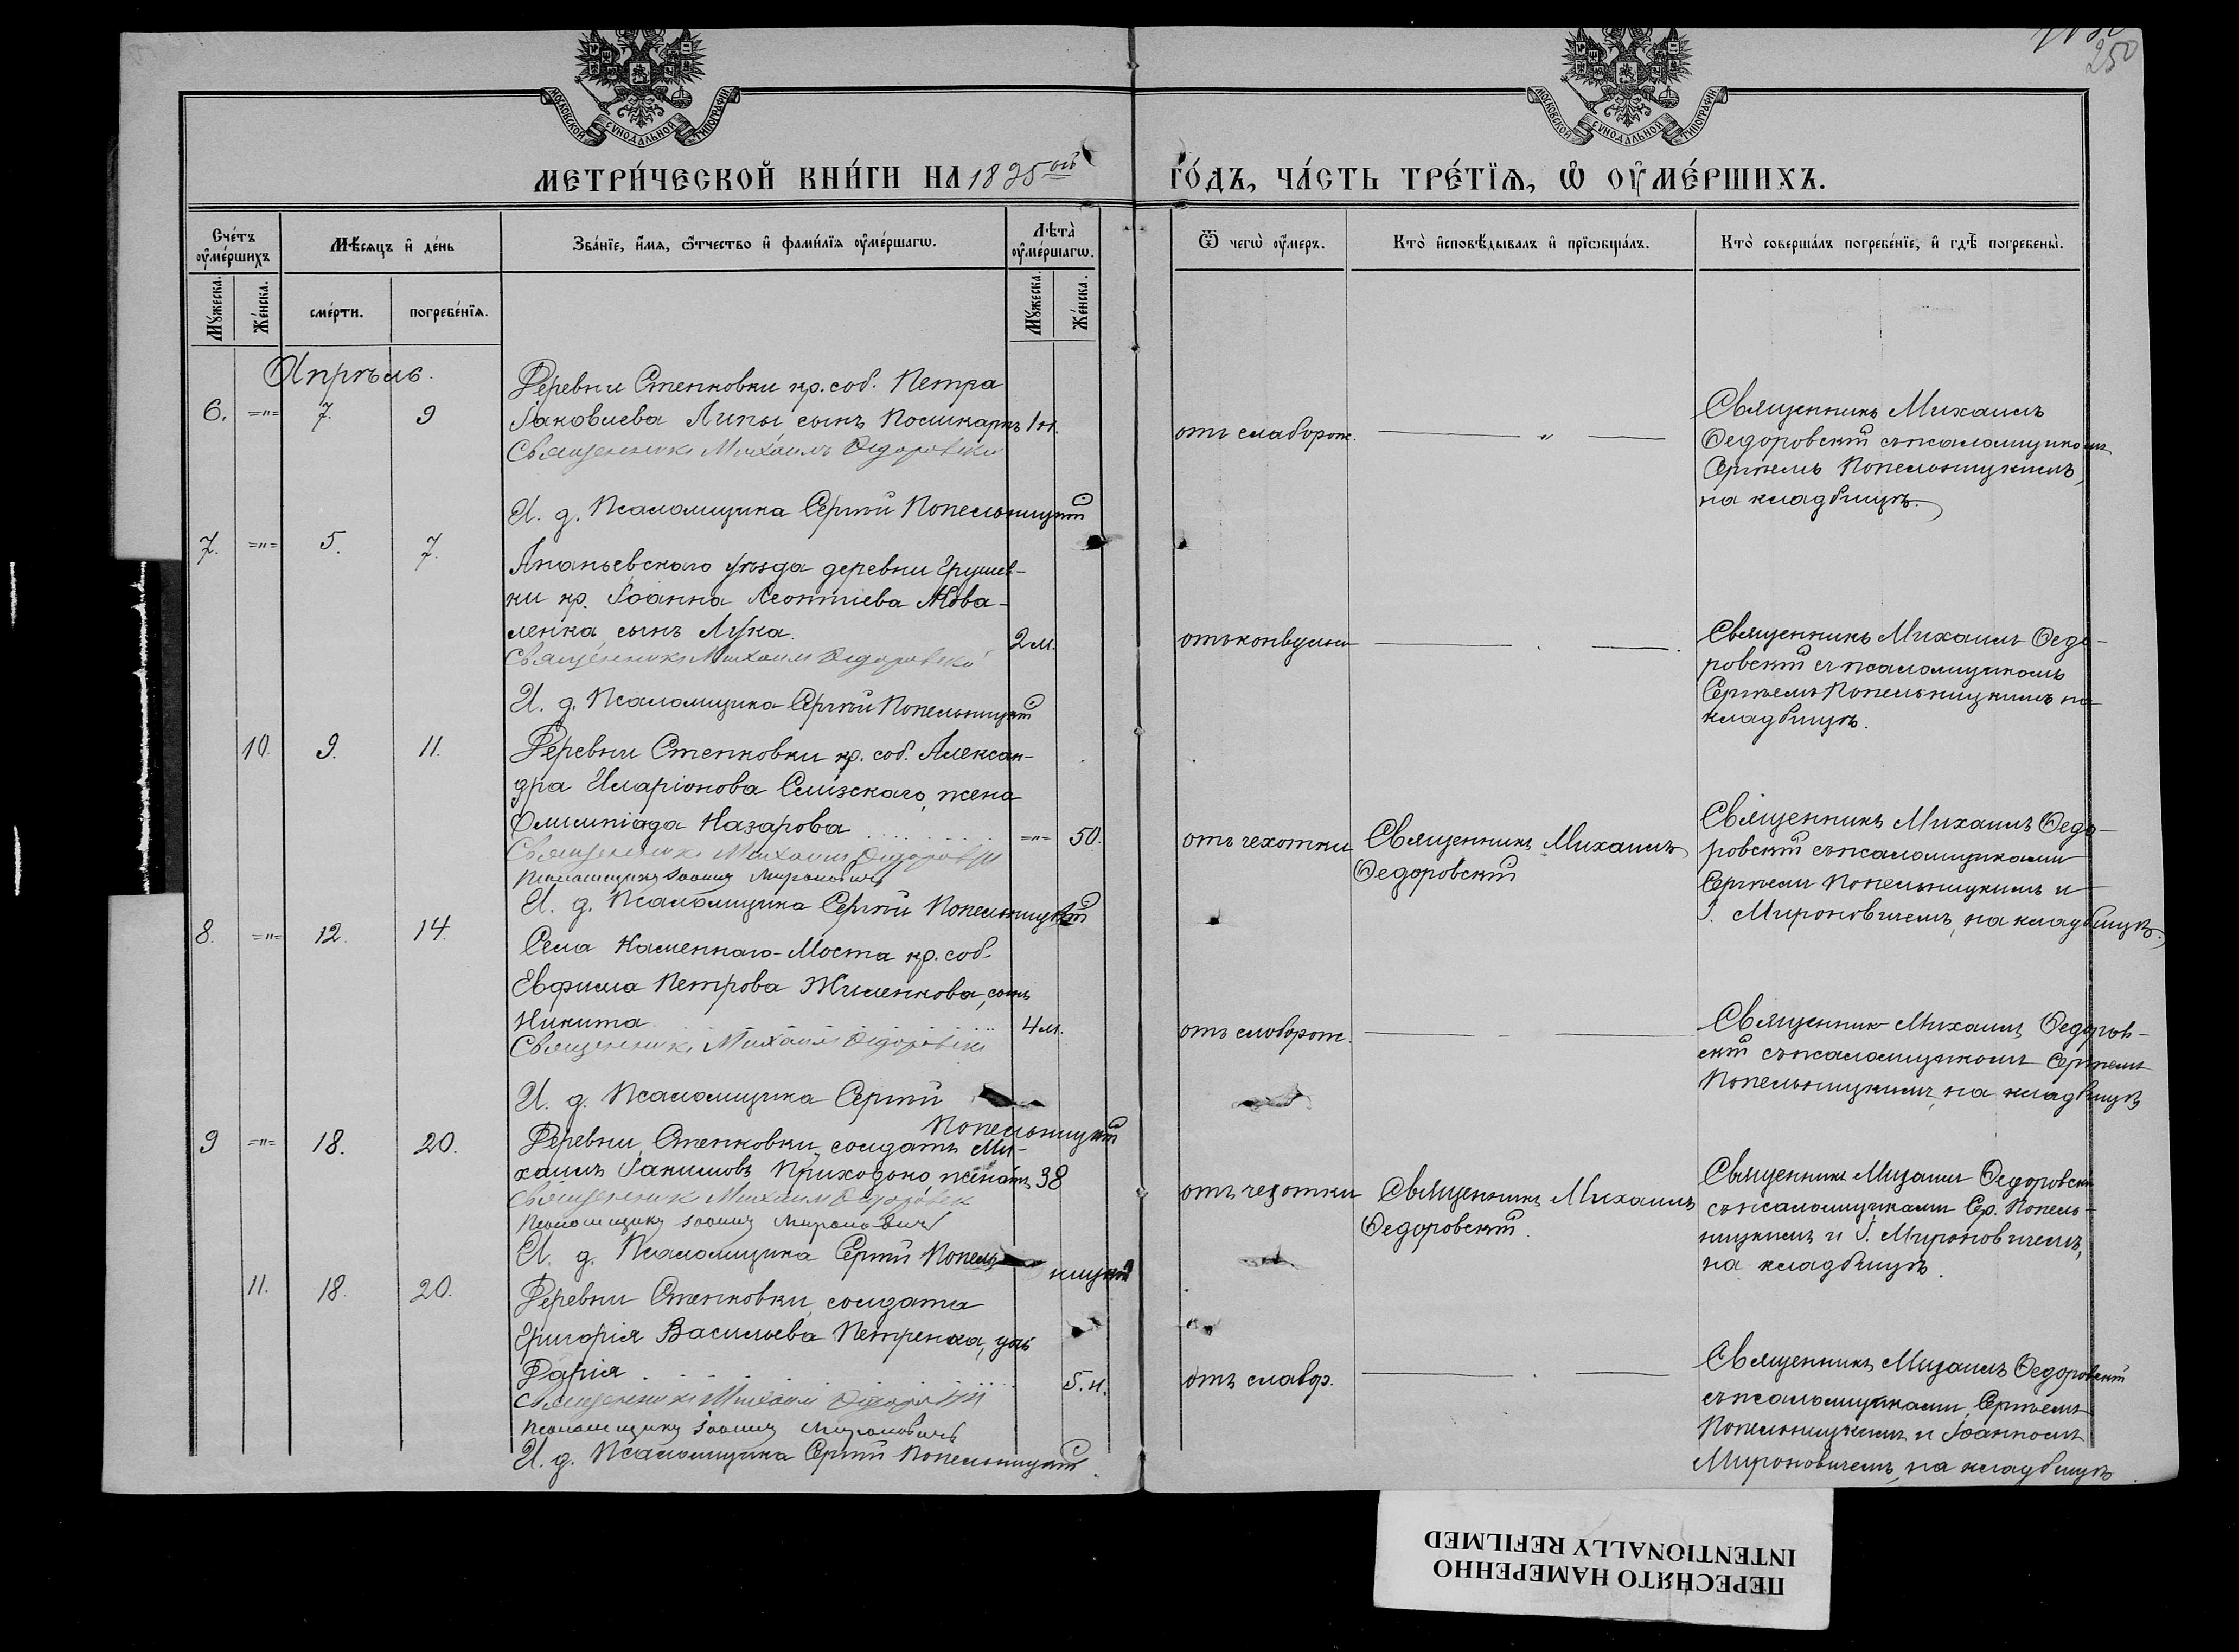 250
МОСКОВСКОЙ СѴНОДАЛЬНОЙ ТИПОГРАФІИ
МОСКОВСКОЙ СѴНОДАЛЬНОЙ ТИПОГРАФІИ
МЕТРИ́ЧЕСКОЙ КНИ́ГИ НА 1895ой ГО́ДЪ, ЧА́СТЬ ТРЕ́ТЇѦ, Ѡ҆ ОУ҆МЕ́РШИХЪ.
Сче́тъ оу҆ме́ршихъ
Мѣ́сѧцъ и҆ де́нь
Зва́нїе, и҆́мѧ, ѻ҆́тчество и҆ фами́лїѧ оу҆ме́ршагѡ.
Лѣта̀ оу҆ме́ршагѡ.
Ѿ чегѡ̀ оу҆́меръ.
Кто̀ и҆сповѣ́дывалъ и҆ прїѡбща́лъ.
Кто̀ соверша́лъ погребе́нїе, и҆ гдѣ̀ погребены̀.
Мꙋ́жеска.
Же́нска.
сме́рти.
погребе́нїѧ.
Мꙋ́жеска.
Же́нска.
Апрѣль.
6. =„= 7. 9
Деревни Степковки кр. соб. Петра
Іаковлева Липы сынъ Поликарпъ 1н.
Священникъ Михаилъ Федоровскій
И. д. Псаломщика Сергій Попельницкій
отъ слаборож. „
Священникъ Михаилъ
Федоровскій съ псаломщикомъ
Сергіемъ Попельницкимъ,
на кладбищѣ.
7. =„= 5. 7.
Ананьевскаго уѣзда деревни Грушев-
ки кр. Іоанна Леонтіева Кова-
ленка, сынъ Лука. 2м.
Священникъ Михаилъ Федоровскій
И. д. Псаломщика Сергій Попельницкій
отъ конвульсіи
Священникъ Михаилъ Федо-
ровскій съ псаломщикомъ
Сергіемъ Попельницкимъ на
кладбищѣ.
10. 9. 11.
Деревни Степковки кр. соб. Алексан-
дра Иларіонова Слизскаго, жена
Олимпіада Назарова =„= 50.
Священникъ Михаилъ Федоровскій
Псаломщикъ Іоаннъ Мироновичъ
И. д. Псаломщика Сергій Попельницкій
отъ чехотки
Священникъ Михаилъ
Федоровскій
Священникъ Михаилъ Федо-
ровскій съ псаломщиками
Сергіемъ Попельницкимъ и
І. Мироновичемъ, на кладбищѣ.
8. =„= 12. 14.
Села Каменнаго-Моста кр. соб.
Евфима Петрова Жиленкова, сынъ
Никита 4м.
Священникъ Михаилъ Федоровскій
И. д. Псаломщика Сергій
Попельницкій
отъ слоборож.
Священник Михаилъ Федоров-
скій съ псаломщикомъ Сергіемъ
Попельницкимъ, на кладбищѣ
9 =„= 18. 20.
Деревни Степковки солдатъ Ми-
хаилъ Іакимовъ Приходько, женатъ 38
Священникъ Михаилъ Федоровскій
Псаломщикъ Іоаннъ Мироновичъ
И. д. Псаломщика Сергій Попель-
ницкій
отъ чехотки
Священникъ Михаилъ
Федоровскій.
Священникъ Михаилъ Федоровскій
съ псаломщиками Сер. Попель-
ницкимъ и І. Мироновичемъ,
на кладбищѣ.
11. 18. 20.
Деревни Степковки, солдата
Григорія Васильева Петренка, дочь
Дарія 5.н.
Священникъ Михаилъ Федоровскій
Псаломщикъ Іоаннъ Мироновичъ
И. д. Псаломщика Сергій Попельницкій
отъ слабор.
Священникъ Михаилъ Федоровскій
съ псаломщиками, Сергіемъ
Попельницкимъ и Іоанномъ
Мироновичемъ, на кладбищѣ.
ПЕРЕСНЯТО НАМЕРЕННО
INTENTIONALLY REFILMED